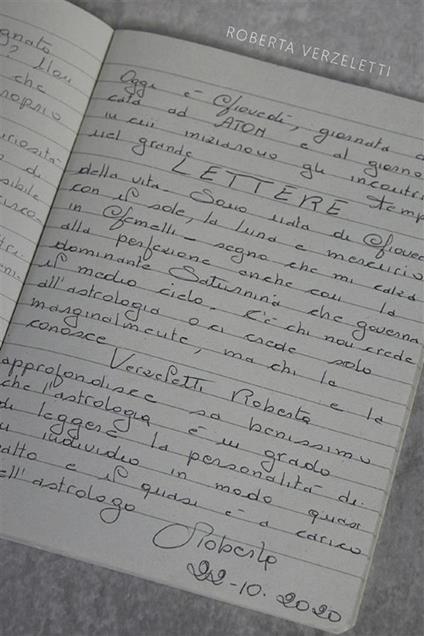 ROBERTA VERZELETTI
gnato
che
roprio
di
sibile
Oggi è Giovedì, giornata d
cata ad ATON e al giorno
in cui iniziarono gli incontri
nel grande temp
LETTERE
della vita. Sono nata di Giove
con il sole, la luna e mercurio
in Gemelli - segno che mi calza
alla perfezione anche con la
dominante Saturnina che governa
il medio cielo. C'è chi non crede
all'astrologia o ci crede solo
marginalmente, ma chi la
conosce e la
Verzeletti Roberta
approfondisce sa benissimo
che l'astrologia è in grado
di leggere la personalità di
un individuo in modo quasi
atto e il quasi è a carico
ell'astrologo
Roberta
22-10.2020